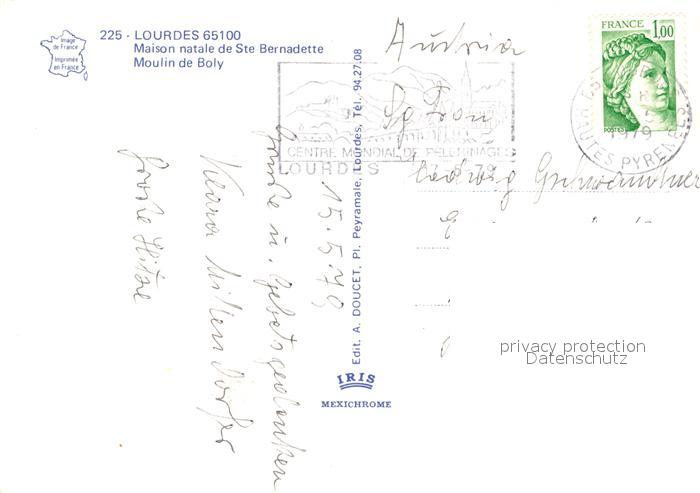 225 - LOURDES 65100
Maison natale de Ste Bernadette
Moulin de Boly
Image de France
Imprimée en France
FRANCE 1,00
POSTES
1979
HAUTES PYRENEES
CENTRE MONDIAL DE PELERINAGES
LOURDES
Austria
Ludwig
15.5.79
Grüsse u. Gebetsgedanken
Klara
Große Hitze
Edit. A. DOUCET, Pl. Peyramale, Lourdes, Tél. 94.27.08
IRIS
MEXICHROME
privacy protection
Datenschutz